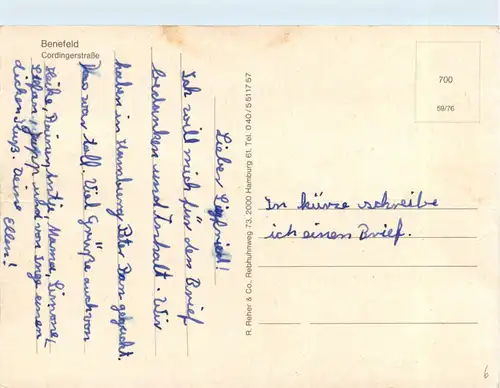 Benefeld
Cordingerstraße
Lieber Siegfried!
Ich will mich für den Brief
bedanken und Inhalt. Wir
haben in Hamburg Peter Pan geguckt.
Das war toll. Viel Grüße auch von
Heike, Rainer, Mama, Simone,
Stefan, und von Inge einen
dicken Kuß. Deine Ellen!
R. Reher & Co., Rebhuhnweg 73, 2000 Hamburg 61, Tel. 040/5 51 17 57
700
59/76
In kürze schreibe
ich einen Brief.
6